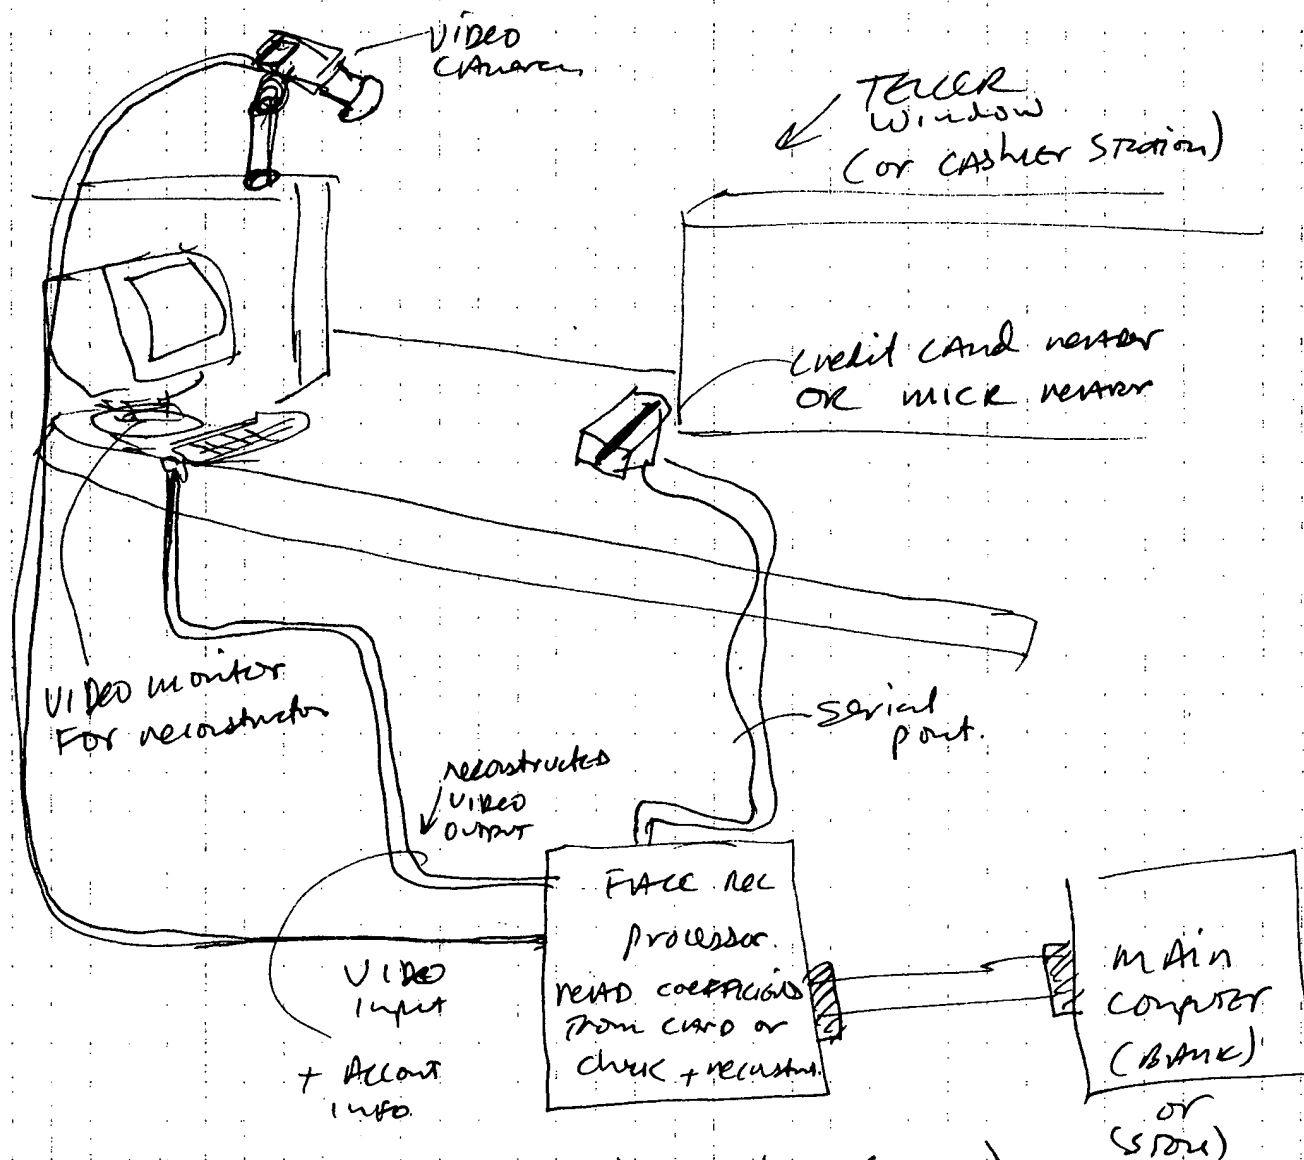 VIDEO
CAMERA
TELLER
Window
(or CASHIER STATION)
Credit CARD reader
OR MICR reader
VIDEO monitor
For reconstruction
Serial
port.
reconstructed
VIDEO
OUTPUT
FACE Rec
processor.
READ COEFFICIENTS
From CARD or
check + reconstruct.
VIDEO
Input
+ Account
INFO.
MAIN
COMPUTER
(BANK)
or
(STORE)